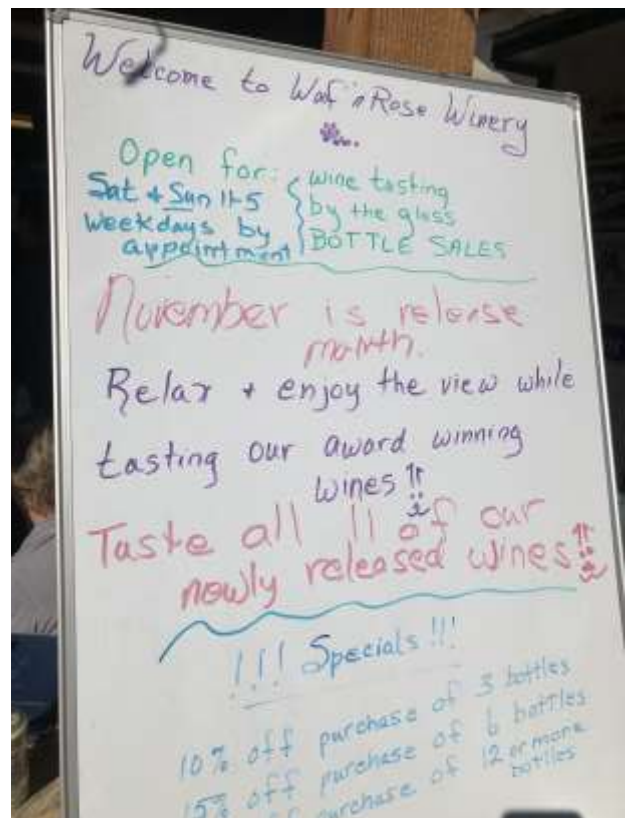 Welcome to Wof'n Rose Winery
Open for: wine tasting
Sat + Sun 11-5 by the glass
Weekdays by appointment BOTTLE SALES
November is release
month.
Relax + enjoy the view while
tasting our award winning
wines!!
Taste all 11 of our
newly released wines!!
!!! Specials !!!
10% off purchase of 3 bottles
15% off purchase of 6 bottles
off purchase of 12 or more
bottles